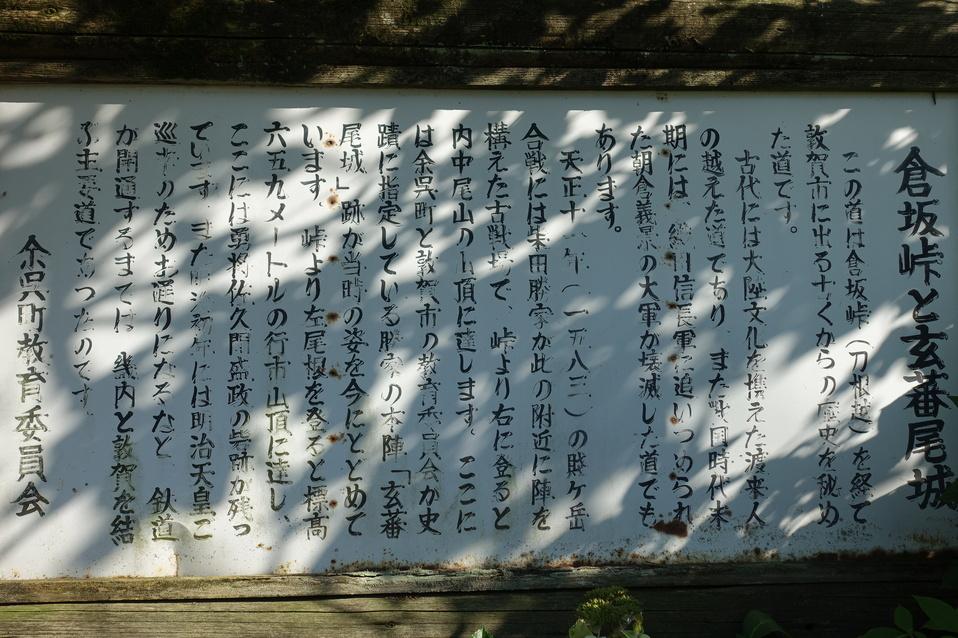 倉坂峠と玄蕃尾城
この道は倉坂峠（刀根越）を経て
敦賀市に出る古くからの歴史を秘め
た道です。
古代には大陸文化を携えた渡来人
の越えた道であり また戦国時代末
期には、織田信長軍に追いつめられ
た朝倉義景の大軍が壊滅した道でも
あります。
天正十一年（一五八三）の賤ヶ岳
合戦には柴田勝家が此の附近に陣を
構えた古戦場で、峠より右に登ると
内中尾山の山頂に達します。ここに
は余呉町と敦賀市の教育委員会が史
蹟に指定している勝家の本陣「玄蕃
尾城」跡が当時の姿を今にとどめて
います。峠より左尾根を登ると標高
六五九メートルの行市山頂に達し、
ここには勇将佐久間盛政の砦跡が残っ
ています また明治初年には明治天皇ご
巡幸のため土運りになるなど 鉄道
が開通するまでは 畿内と敦賀を結
ぶ主要道であったのです。
余呉町教育委員会